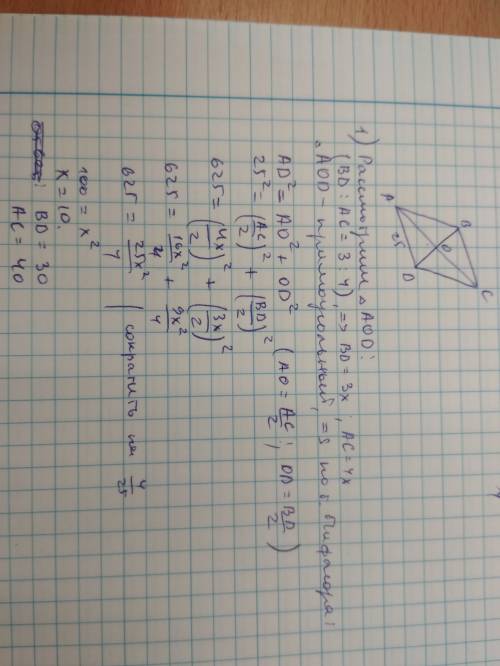 B
A
O
C
25
D
1) Рассмотрим △ AOD:
(BD : AC = 3 : 4), => BD = 3x ; AC = 4x
△ AOD - прямоугольный, => по т. Пифагора:
AD² = AO² + OD² (AO = AC/2 ; OD = BD/2)
25² = (AC/2)² + (BD/2)²
625 = (4x/2)² + (3x/2)²
625 = 16x²/4 + 9x²/4
625 = 25x²/4 | сократить на 4/25
100 = x²
x = 10.
: BD = 30
AC = 40